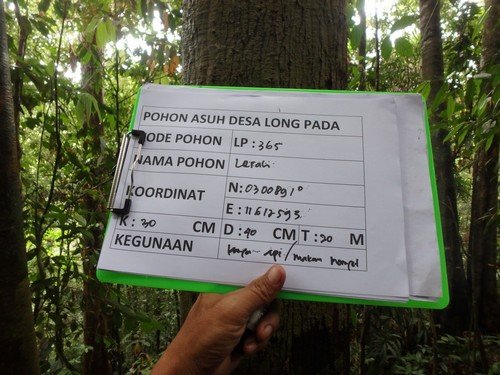 POHON ASUH DESA LONG PADA
KODE POHON LP : 365
NAMA POHON
KOORDINAT N : 0300891°
E : 11612593
K : 30 CM D : 40 CM T : 20 M
KEGUNAAN api / makan